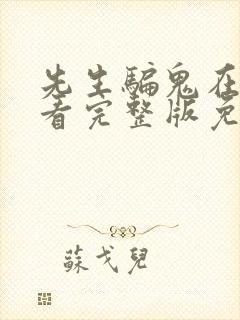 先生騙鬼在
看完整版免
蘇戈兒